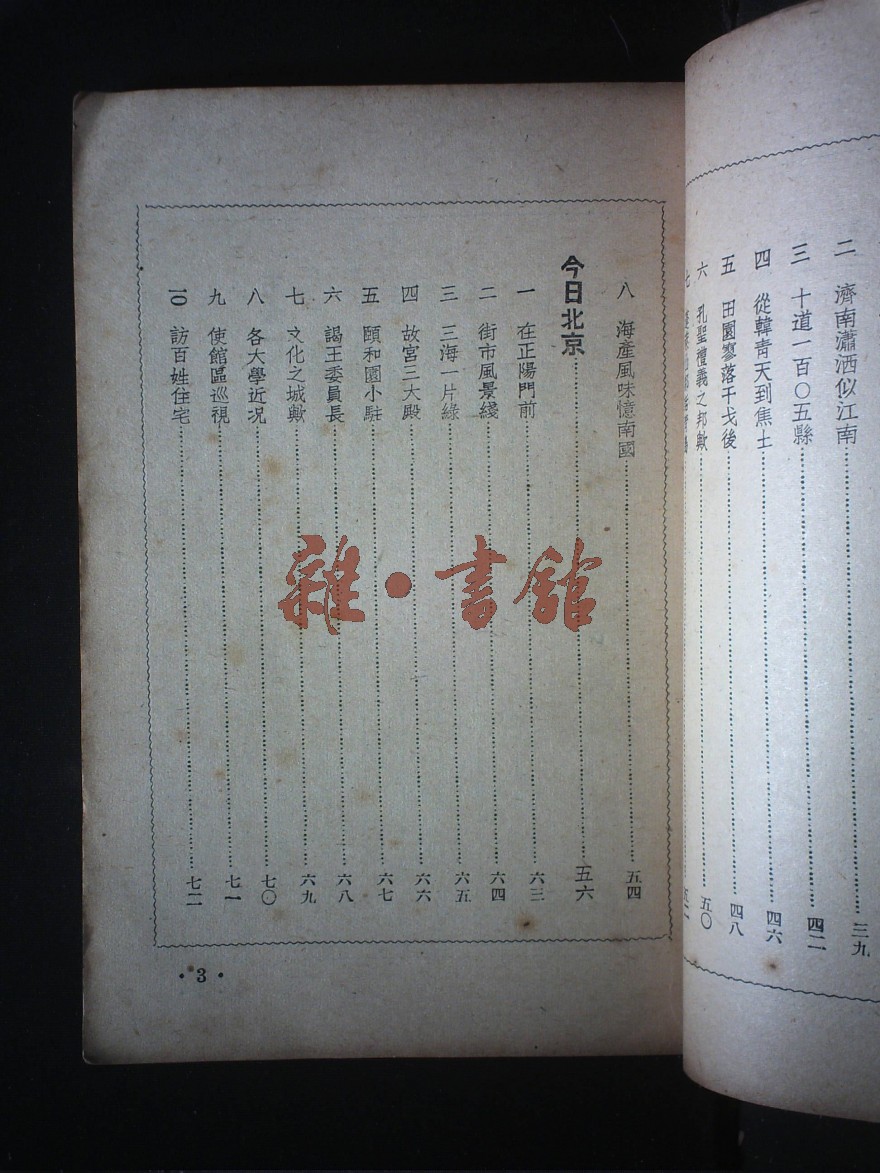 二 濟南瀟洒似江南 三九
三 十道一百〇五縣 四二
四 從韓青天到焦土 四六
五 田園寥落干戈後 四八
六 孔聖禮義之邦歟 五〇
七
八 海產風味憶南國 五四
今日北京 五六
一 在正陽門前 六三
二 街市風景綫 六四
三 三海一片綠 六五
四 故宮三大殿 六六
五 頤和園小駐 六七
六 謁王委員長 六八
七 文化之城歟 六九
八 各大學近况 七〇
九 使館區巡視 七一
一〇 訪百姓住宅 七二
·3·
雜·書館